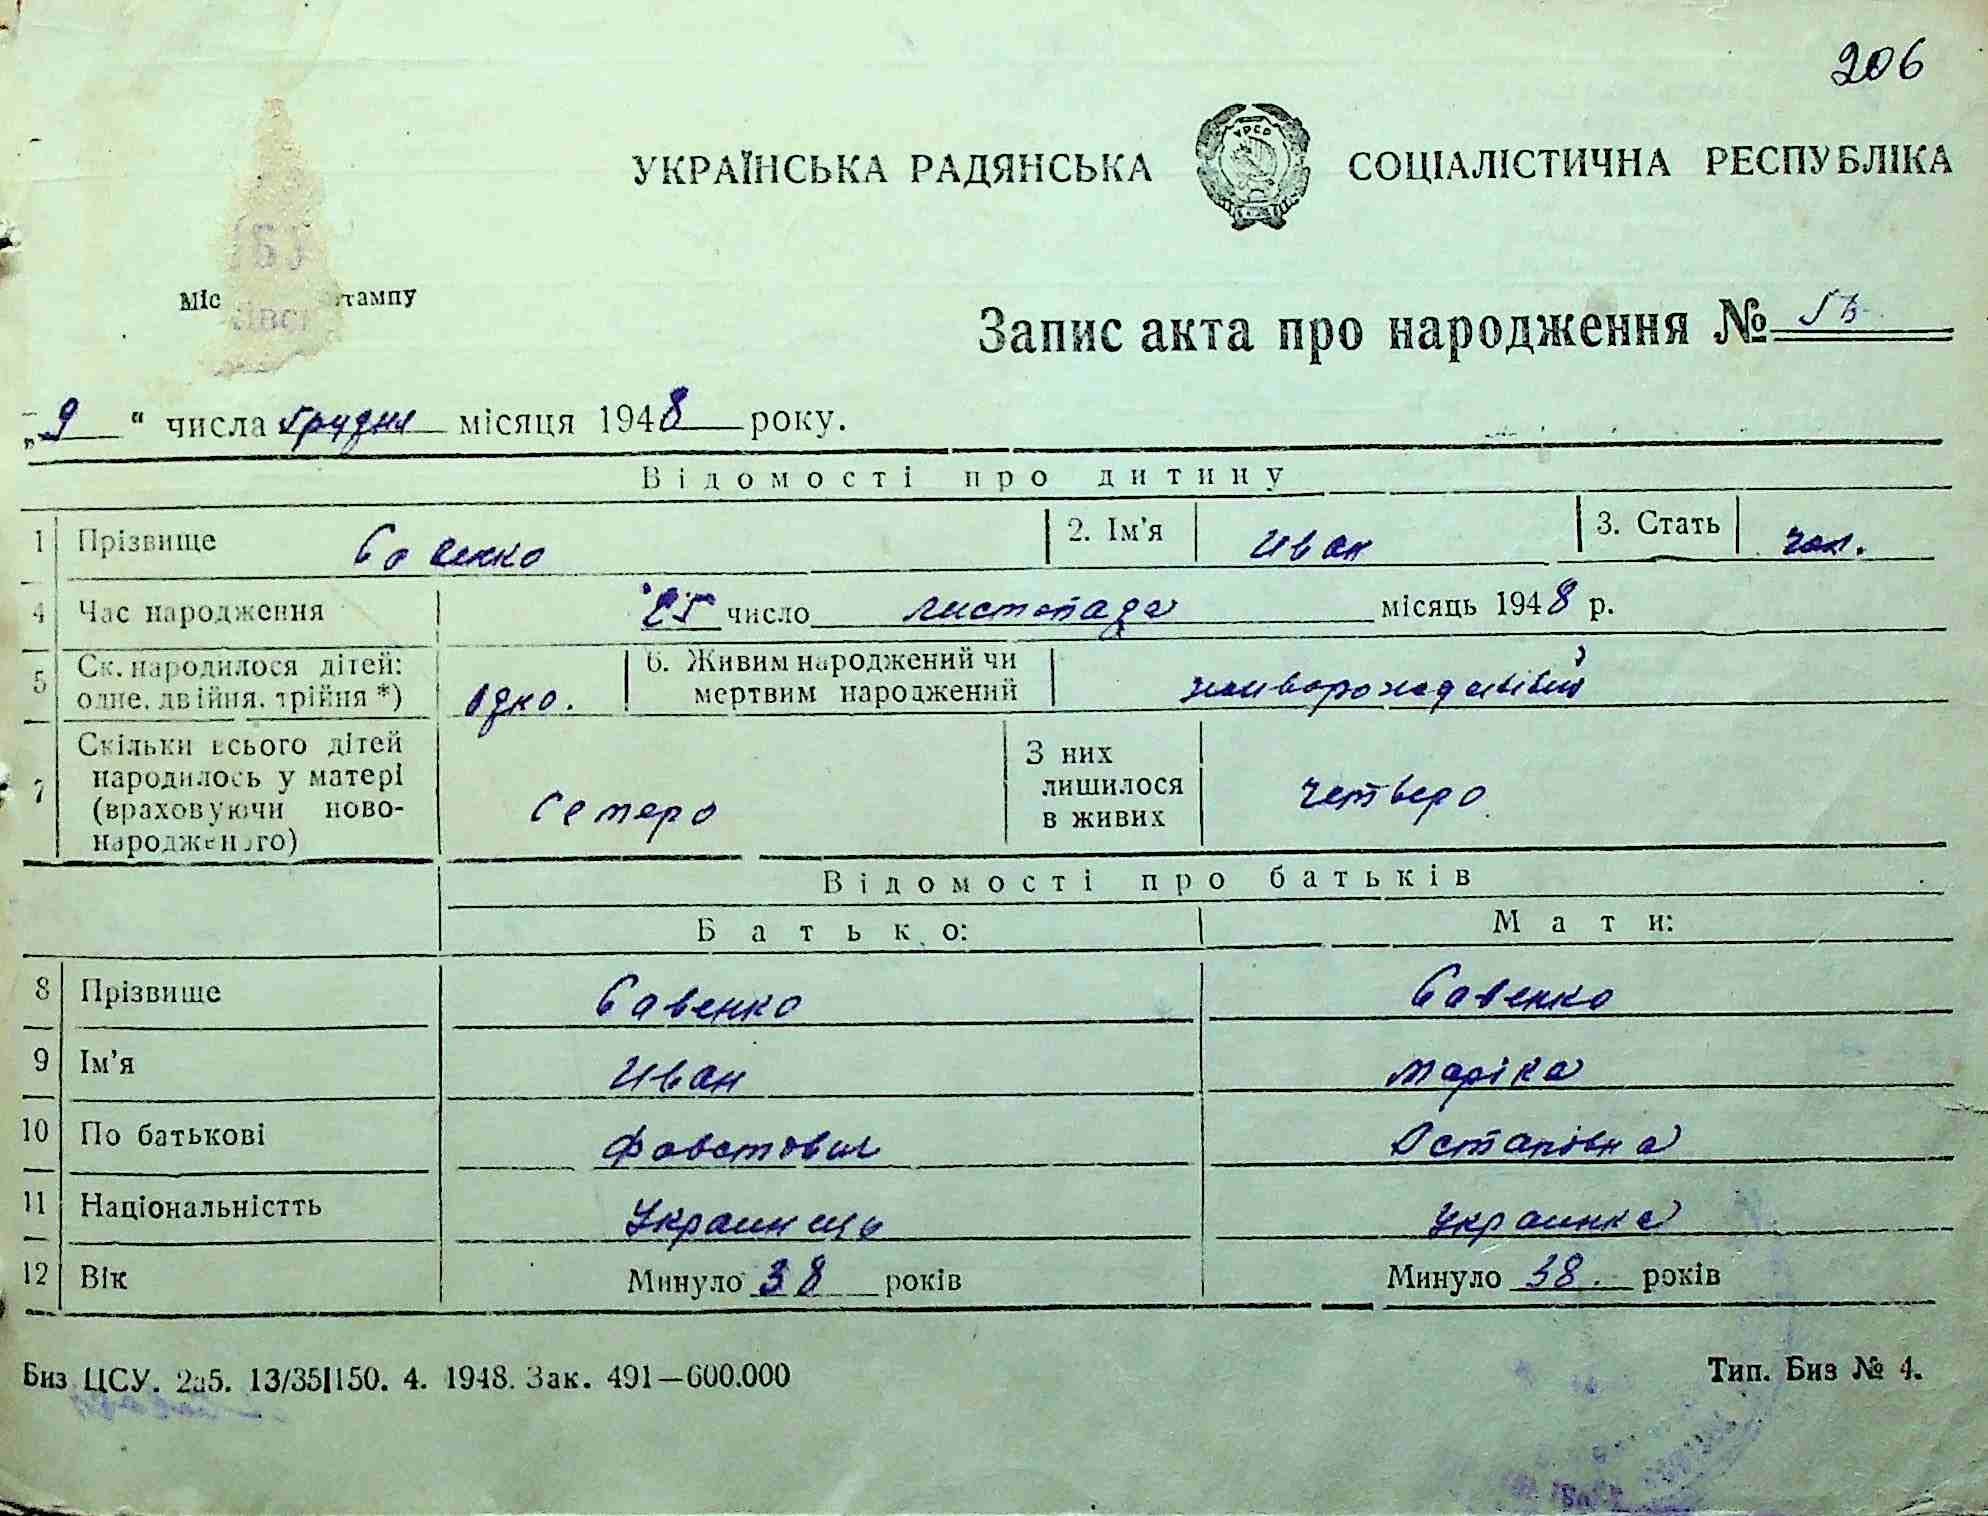 206
УКРАЇНСЬКА РАДЯНСЬКА СОЦІАЛІСТИЧНА РЕСПУБЛІКА
УРСР
Міс тампу
Запис акта про народження №
„9“ числа грудня місяця 1948 року.
Відомості про дитину
1 Прізвище Савенко 2. Ім'я Иван 3. Стать чол.
4 Час народження 25 число листопада місяць 1948 р.
5 Ск. народилося дітей: одне, двійня, трійня *) одно. 6. Живим народжений чи мертвим народжений
7 Скільки всього дітей народилось у матері (враховуючи ново-народженого) Семеро З них лишилося в живих четверо
Відомості про батьків
Батько: Мати:
8 Прізвище Савенко Савенко
9 Ім'я Иван Маріка
10 По батькові Фавстович Остапівна
11 Національністть Украинць Украинка
12 Вік Минуло 38 років Минуло 38. років
Биз ЦСУ. 2а5. 13/35|150. 4. 1948. Зак. 491—600.000 Тип. Биз № 4.